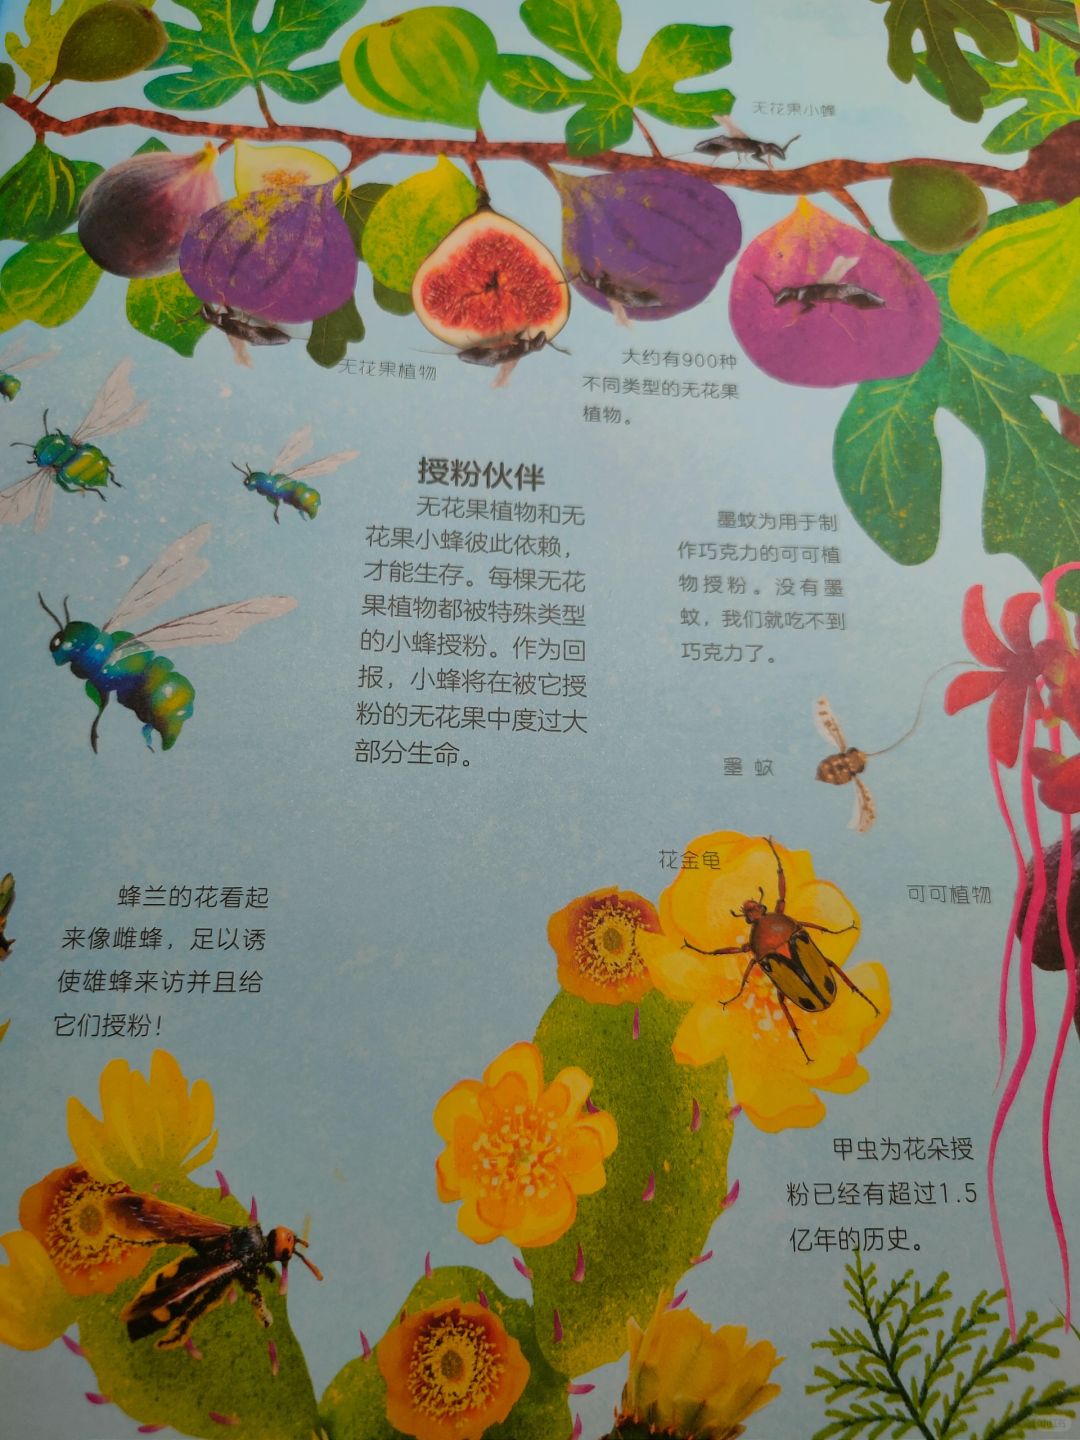 无花果小蜂
无花果植物
大约有900种
不同类型的无花果
植物。
授粉伙伴
无花果植物和无
花果小蜂彼此依赖，
才能生存。每棵无花
果植物都被特殊类型
的小蜂授粉。作为回
报，小蜂将在被它授
粉的无花果中度过大
部分生命。
墨蚊为用于制
作巧克力的可可植
物授粉。没有墨
蚊，我们就吃不到
巧克力了。
墨 蚊
花金龟
可可植物
蜂兰的花看起
来像雌蜂，足以诱
使雄蜂来访并且给
它们授粉！
甲虫为花朵授
粉已经有超过1.5
亿年的历史。